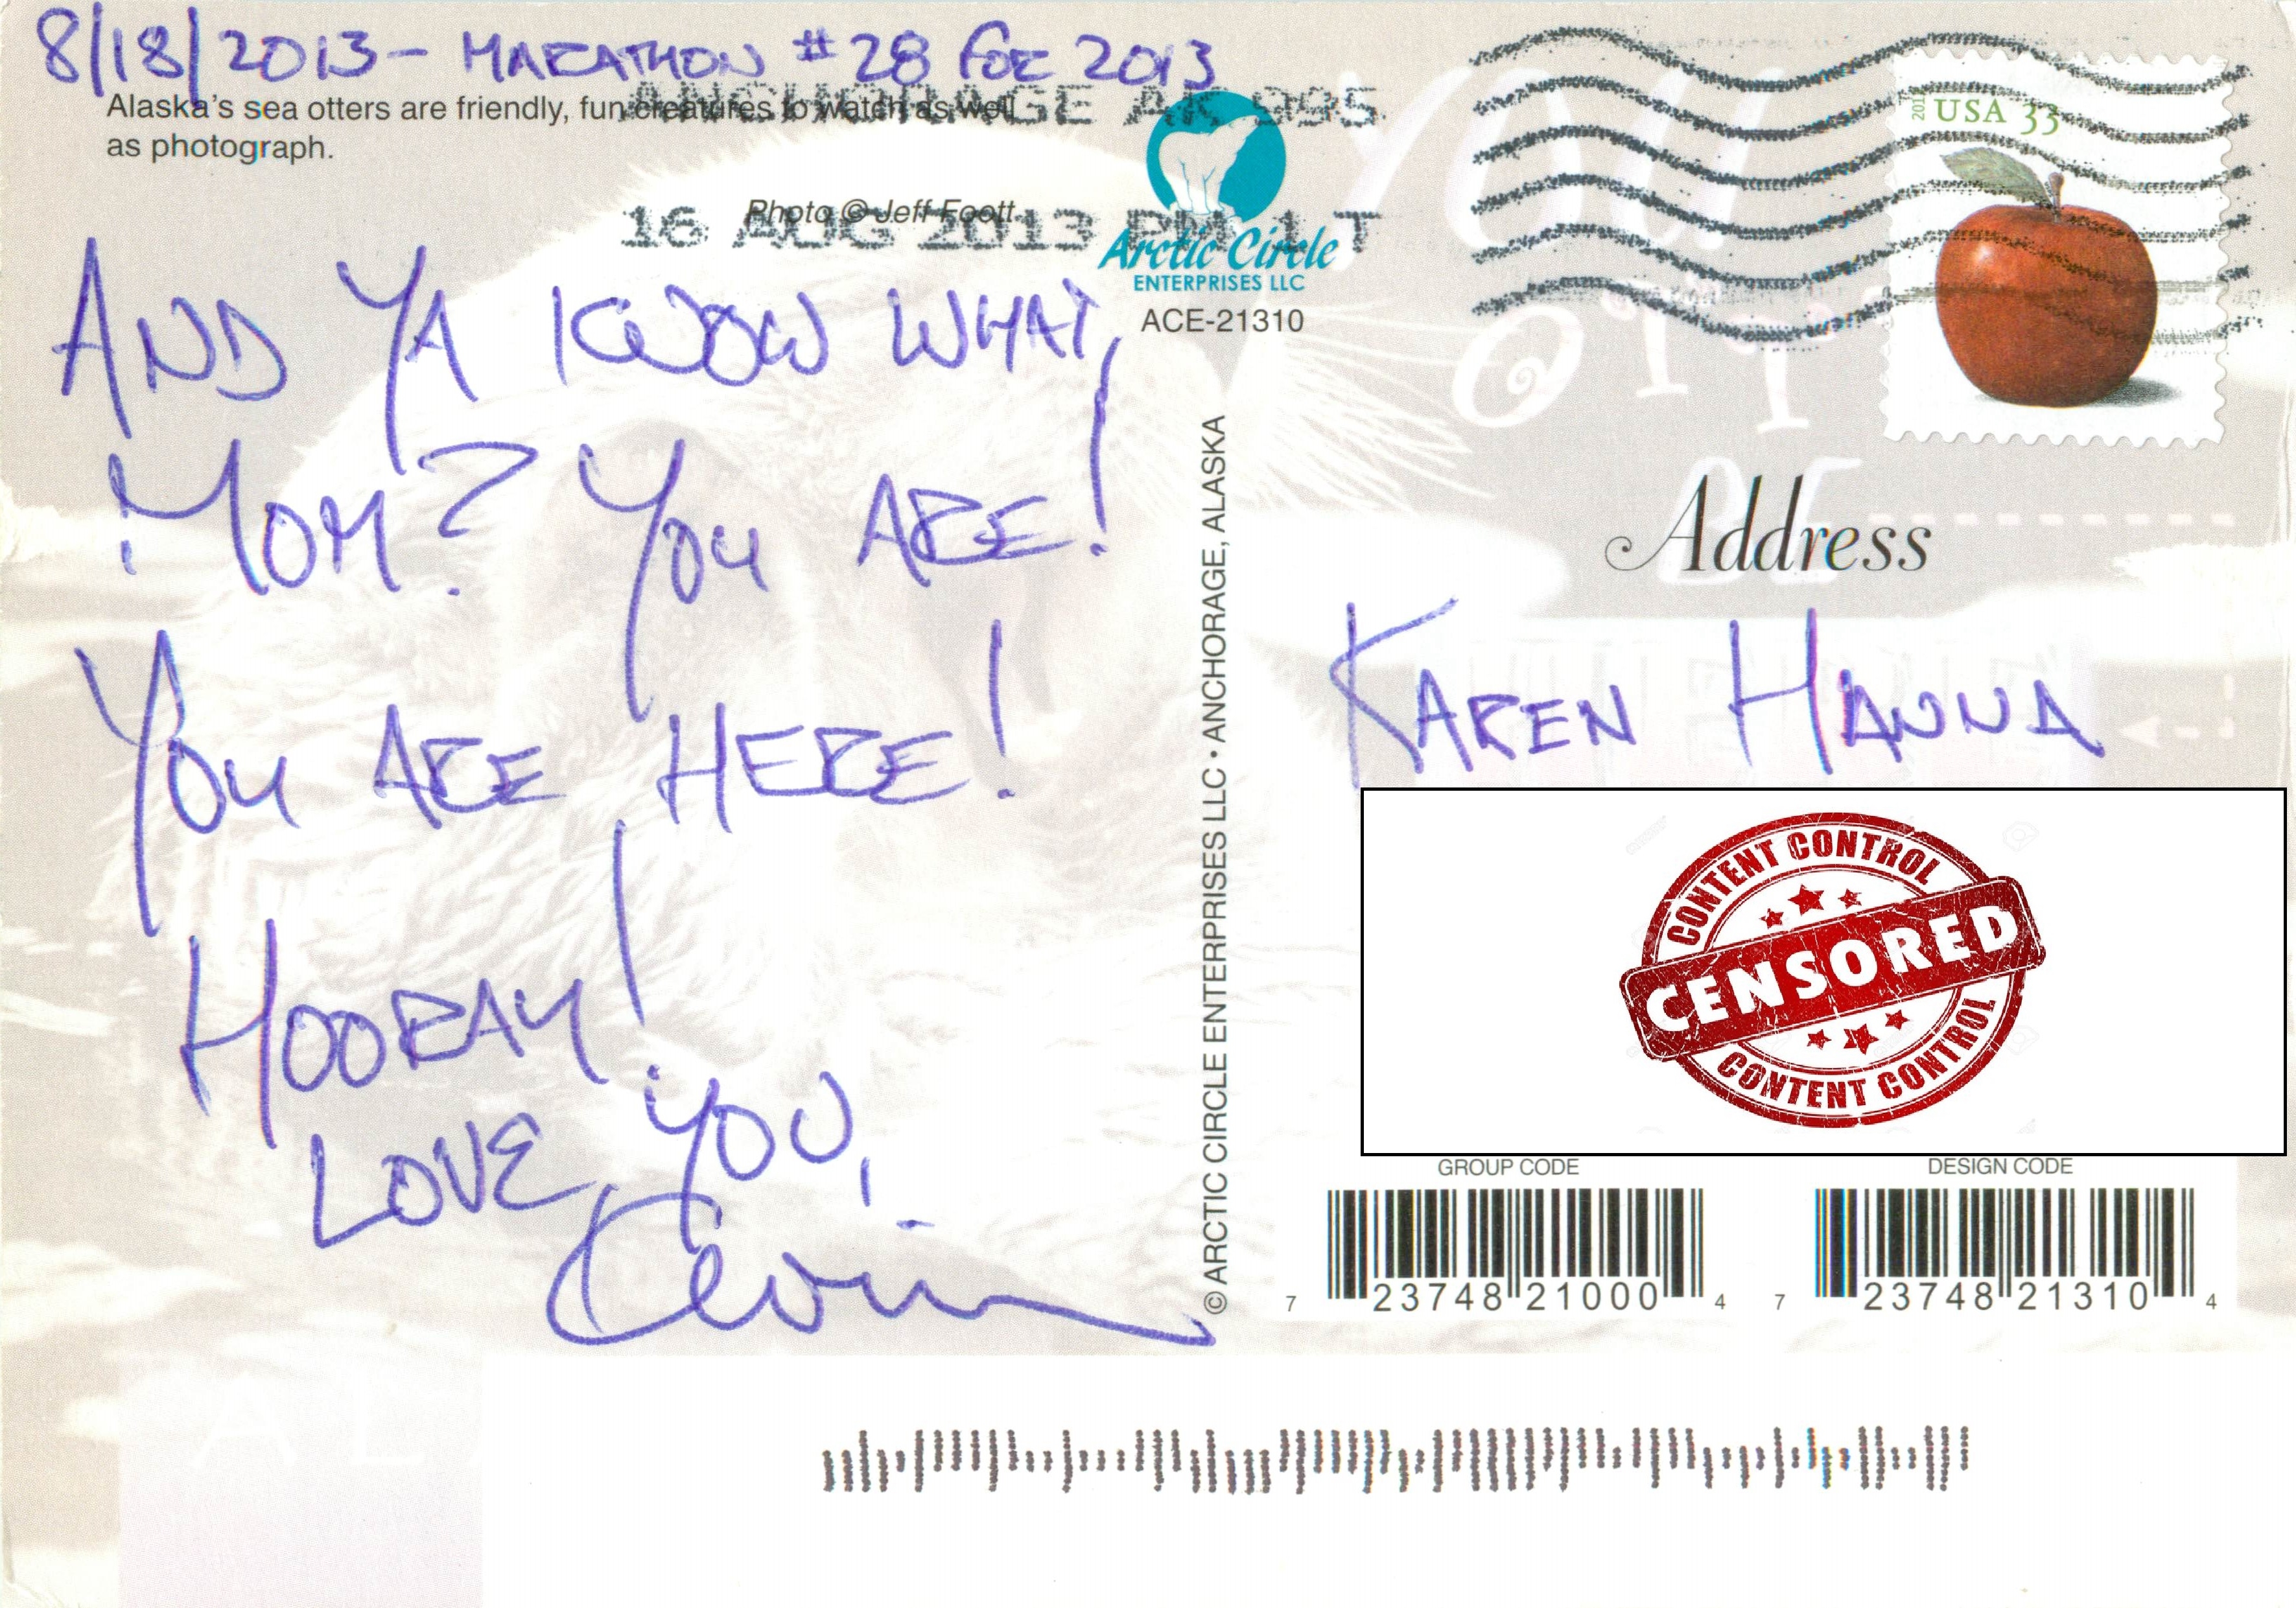 8/18/2013 - MARATHON #28 FOR 2013
Alaska's sea otters are friendly, fun creatures to watch as well
as photograph.
Photo © Jeff Foott
ANCHORAGE AK 995
16 AUG 2013 PM 1 T
Arctic Circle
ENTERPRISES LLC
ACE-21310
AND YA KNOW WHAT,
MOM? YOU ARE!
YOU ARE HERE!
HOORAY!
LOVE YOU,
Kevin
© ARCTIC CIRCLE ENTERPRISES LLC • ANCHORAGE, ALASKA
USA 33
Address
KAREN HANNA
CONTENT CONTROL
CENSORED
CONTENT CONTROL
GROUP CODE
7 23748 21000 4
DESIGN CODE
7 23748 21310 4